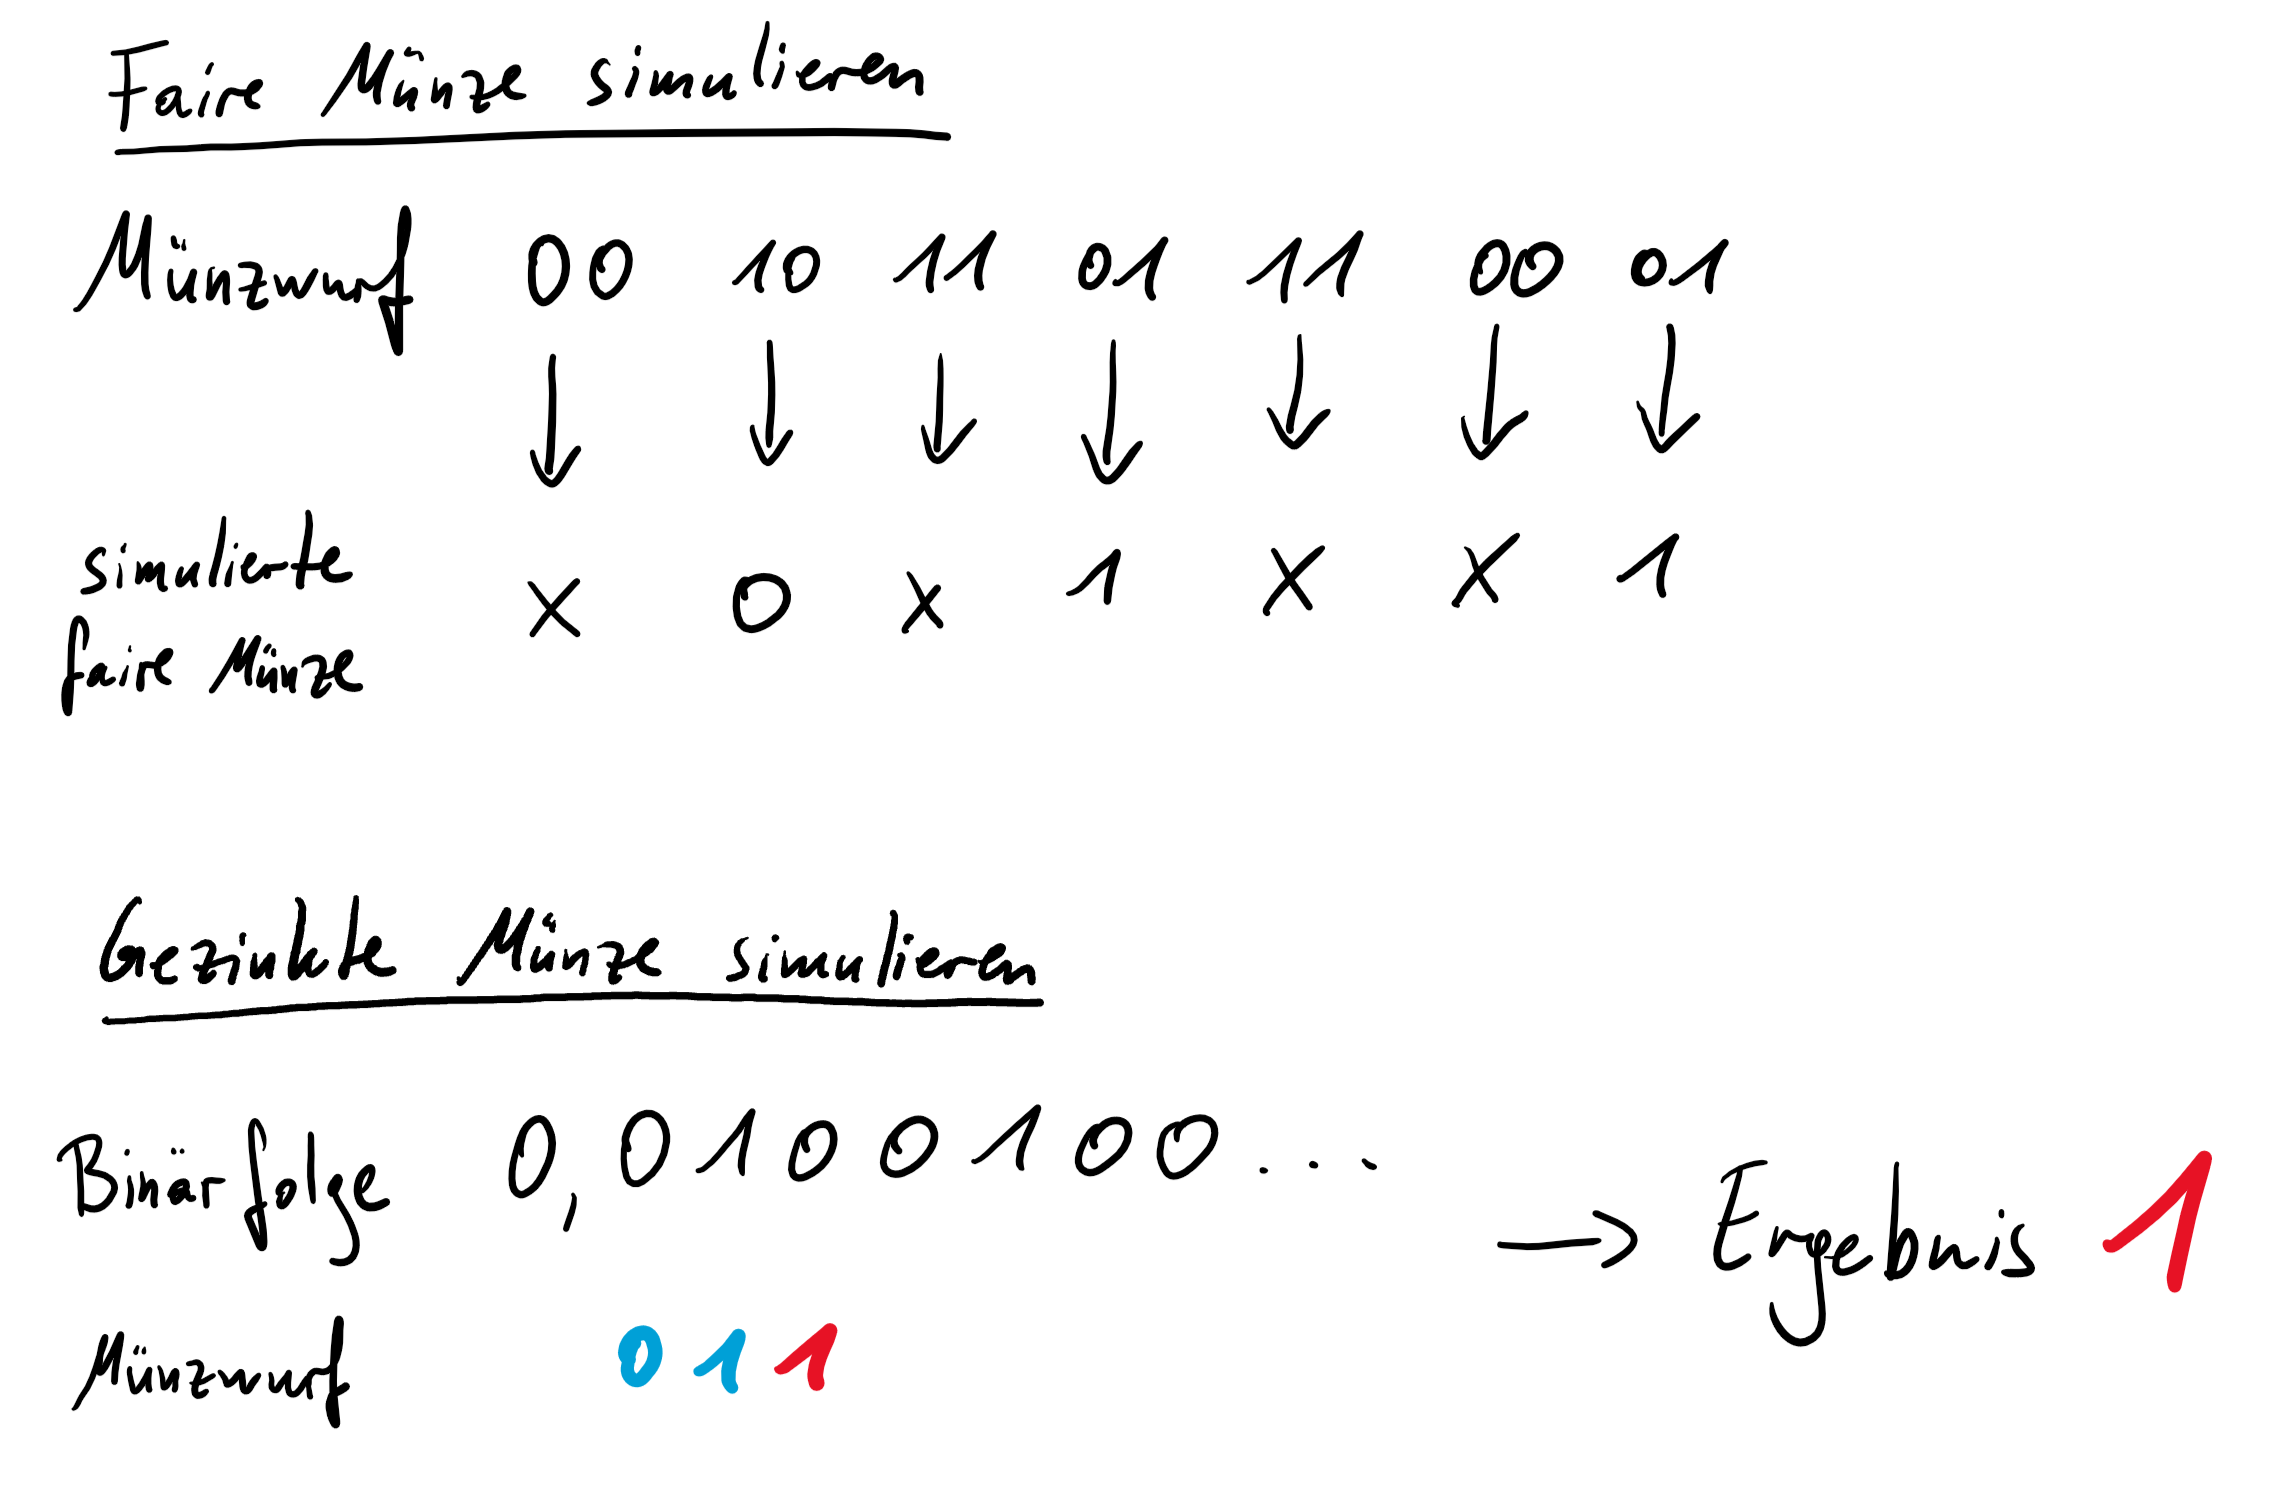 Faire Münze simulieren
Münzwurf 00 10 11 01 11 00 01
↓ ↓ ↓ ↓ ↓ ↓ ↓
simulierte
faire Münze x 0 x 1 x x 1
Gezinkte Münze simulieren
Binärfolge 0,0100100...
→ Ergebnis 1
Münzwurf 011